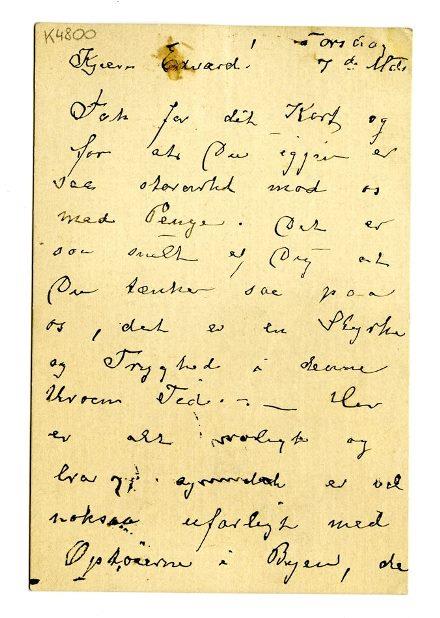 K4800
Torsdag
Kjære Edvard! 7de Mts
Tak for dit Kort og
for at Du igjen er
saa storartet mod os
med Penge. Det er
saa snilt af Dig at
Du tænker saa paa
os, det er en Styrke
og Tryghed i denne
Uroens Tid. — Her
er alt roligt og
bra og er vel
noksaa ufarligt med
Optøierne i Byen, de